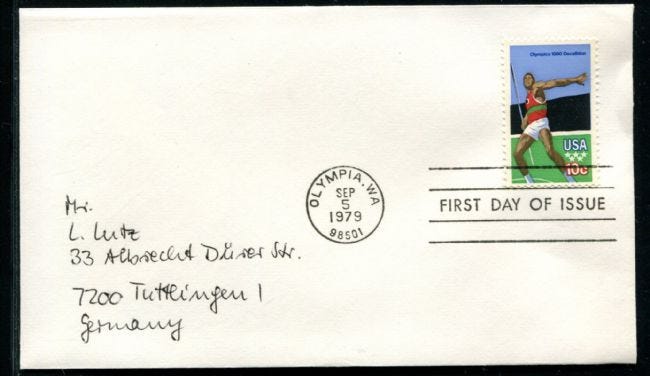 Olympics 1980 Decathlon
USA
10c
OLYMPIA, WA
SEP
5
1979
98501
FIRST DAY OF ISSUE
Mr.
L. Lutz
33 Albrecht Dürer Str.
7200 Tuttlingen 1
Germany